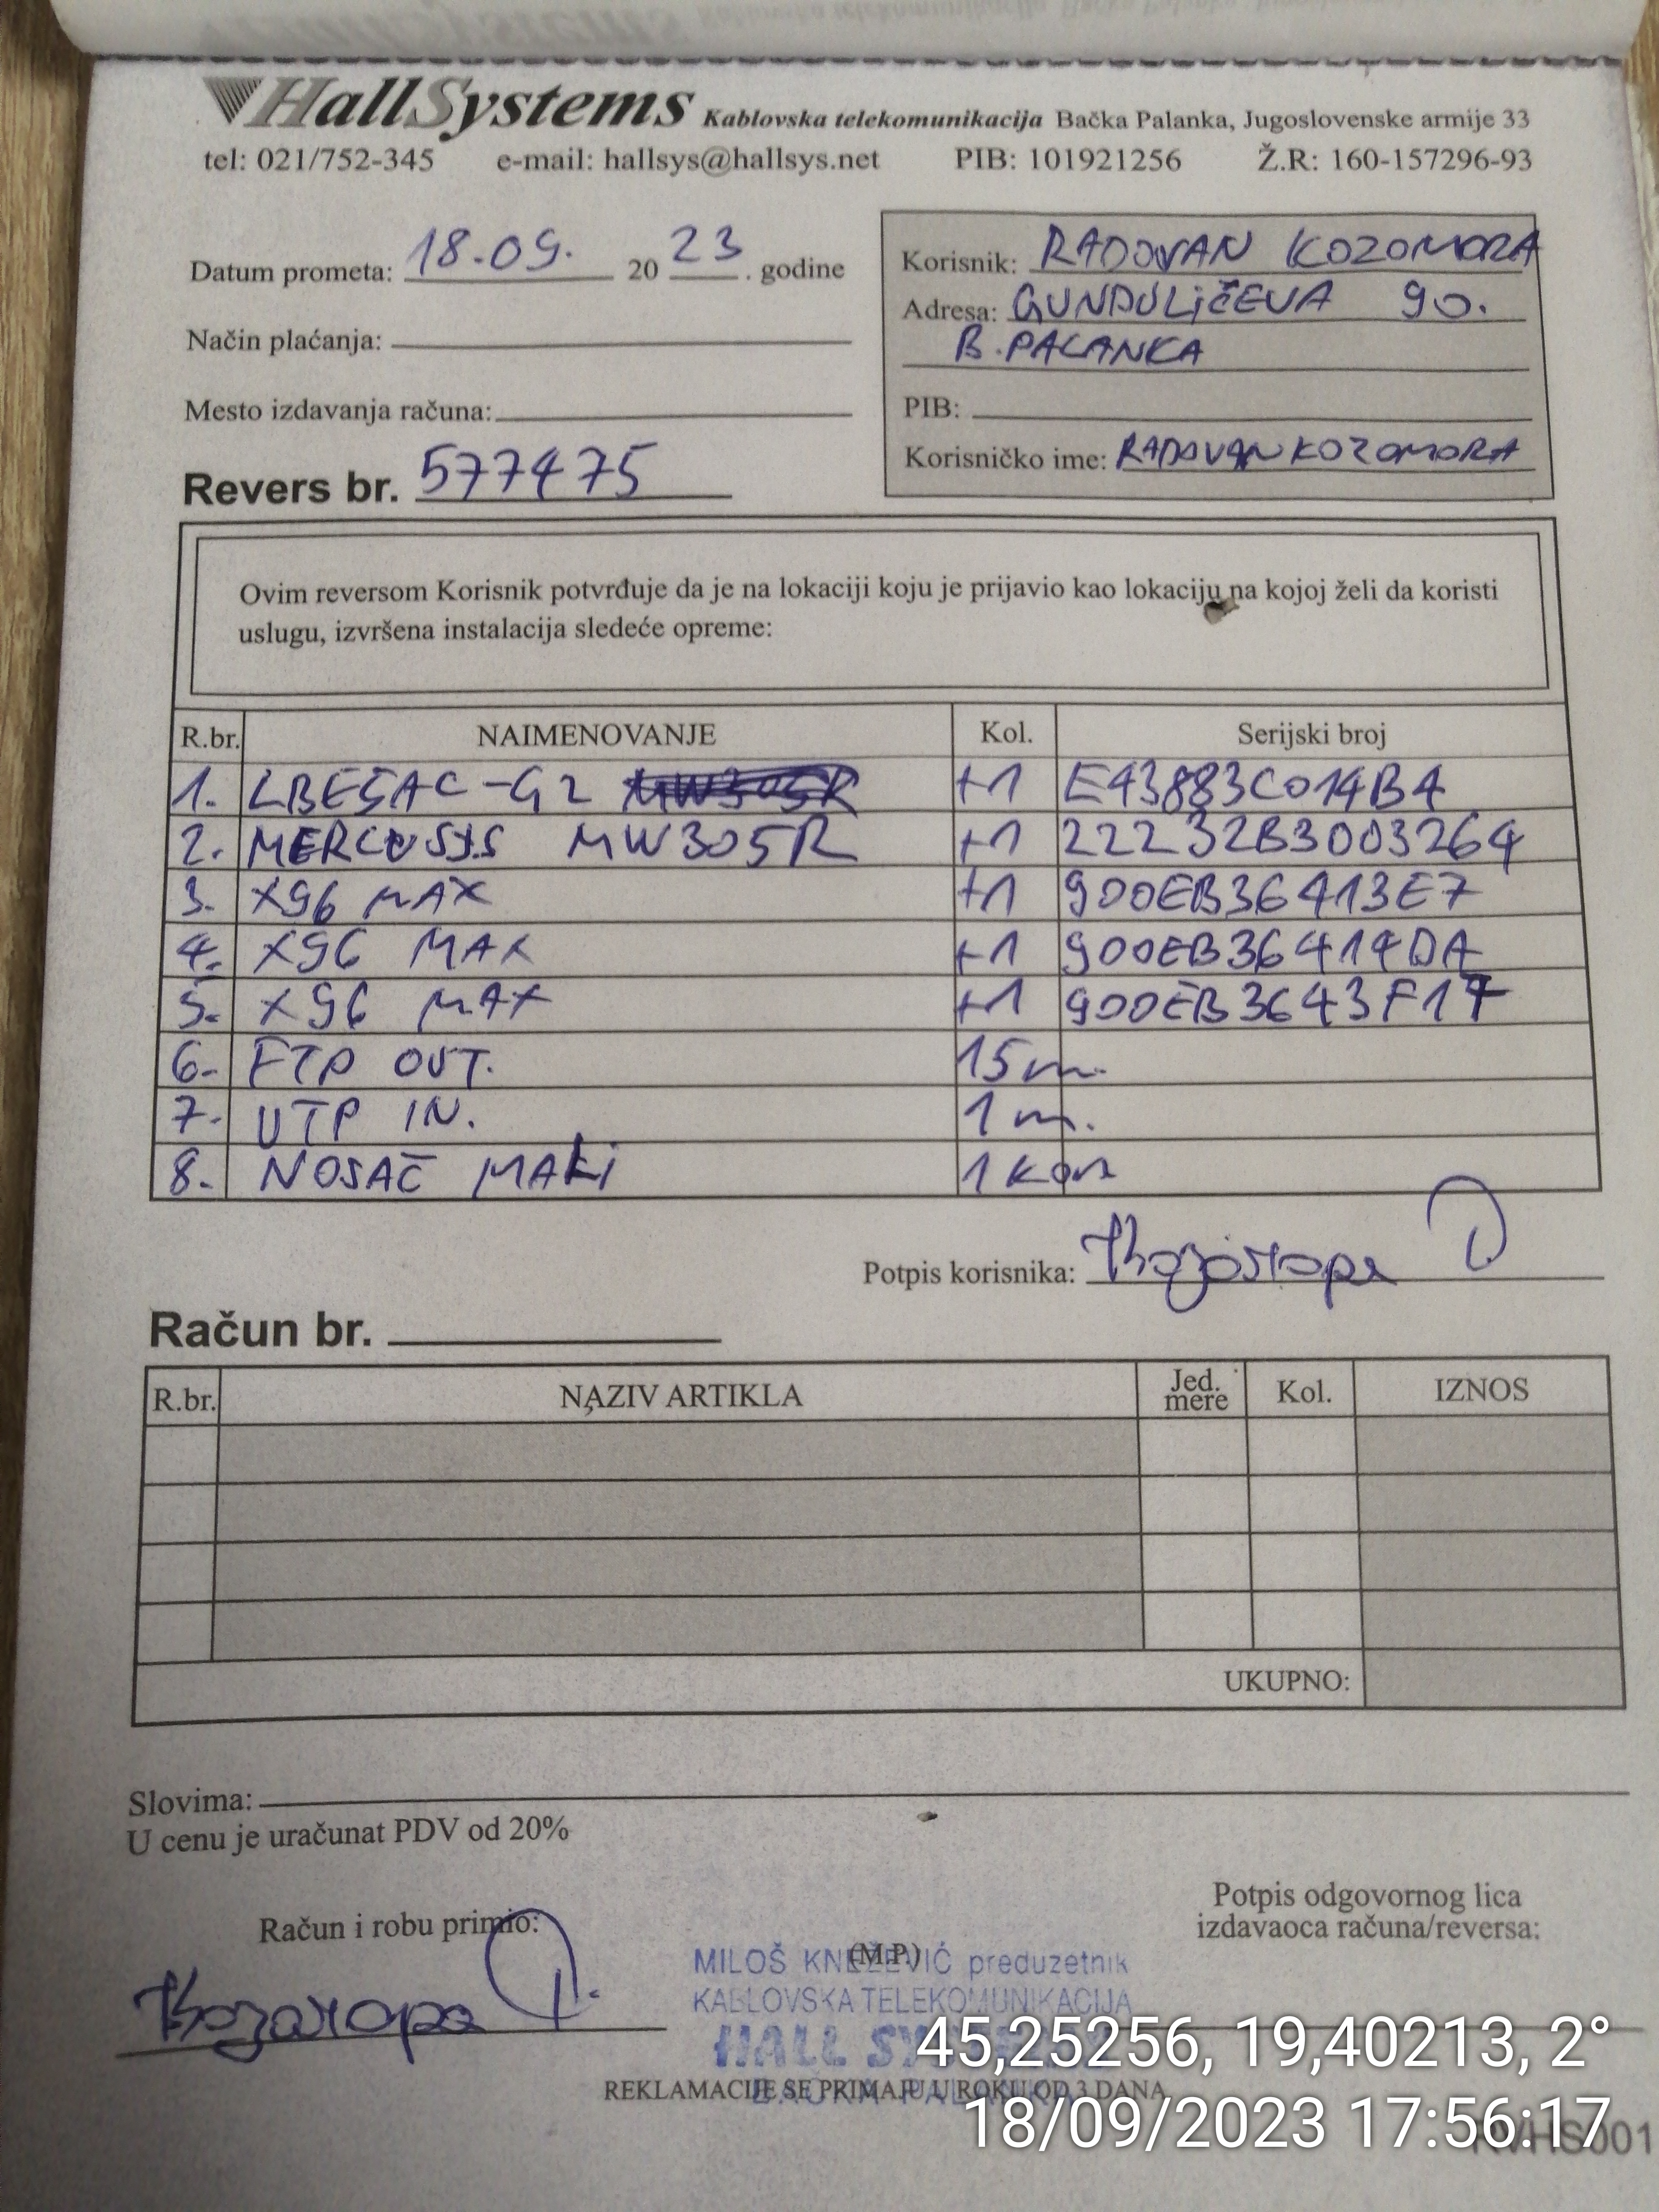 HallSystems Kablovska telekomunikacija Bačka Palanka, Jugoslovenske armije 33
tel: 021/752-345 e-mail: hallsys@hallsys.net PIB: 101921256 Ž.R: 160-157296-93
Datum prometa: 18.09. 20 23 . godine
Način plaćanja:
Mesto izdavanja računa:
Revers br. 577475
Korisnik: RADOVAN KOZOMORA
Adresa: GUNDULiČEVA 90.
B.PALANKA
PIB:
Korisničko ime: RADOVAN KOZOMORA
Ovim reversom Korisnik potvrđuje da je na lokaciji koju je prijavio kao lokaciju na kojoj želi da koristi
uslugu, izvršena instalacija sledeće opreme:
R.br. NAIMENOVANJE Kol. Serijski broj
1. LBE5AC-G2 MW305R +1 E43883C014B4
2. MERCUSYS MW305R +1 22232B3003264
3. X96 MAX +1 900EB36413E7
4. X96 MAX +1 900EB36414DA
5. X96 MAX +1 900EB3643F17
6. FTP OUT. 15m.
7. UTP IN. 1m.
8. NOSAČ MALi 1 kom
Potpis korisnika: Козомора Р
Račun br.
R.br. NAZIV ARTIKLA Jed. mere Kol. IZNOS
UKUPNO:
Slovima:
U cenu je uračunat PDV od 20%
Račun i robu primio:
Козомора Р.
(M.P.)
MILOŠ KNEŽEVIĆ preduzetnik
KABLOVSKA TELEKOMUNIKACIJA
HALL SYSTEMS
BAČKA PALANKA
Potpis odgovornog lica
izdavaoca računa/reversa:
REKLAMACIJE SE PRIMAJU U ROKU OD 3 DANA
45,25256, 19,40213, 2°
18/09/2023 17:56:17